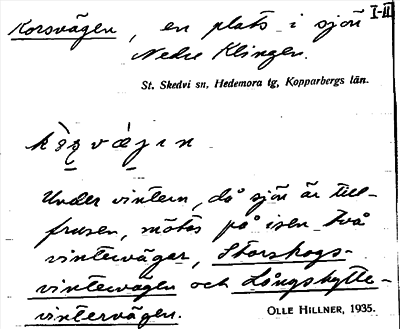 Korsvägen, en plats i sjön I-III
Nedre Klingen.
St. Skedvi sn, Hedemora tg, Kopparbergs län.
Under vintern, då sjön är till-
frusen, mötas på isen två
vintervägar, Storskogs-
vintervägen och Långshytte-
vintervägen.
OLLE HILLNER, 1935.